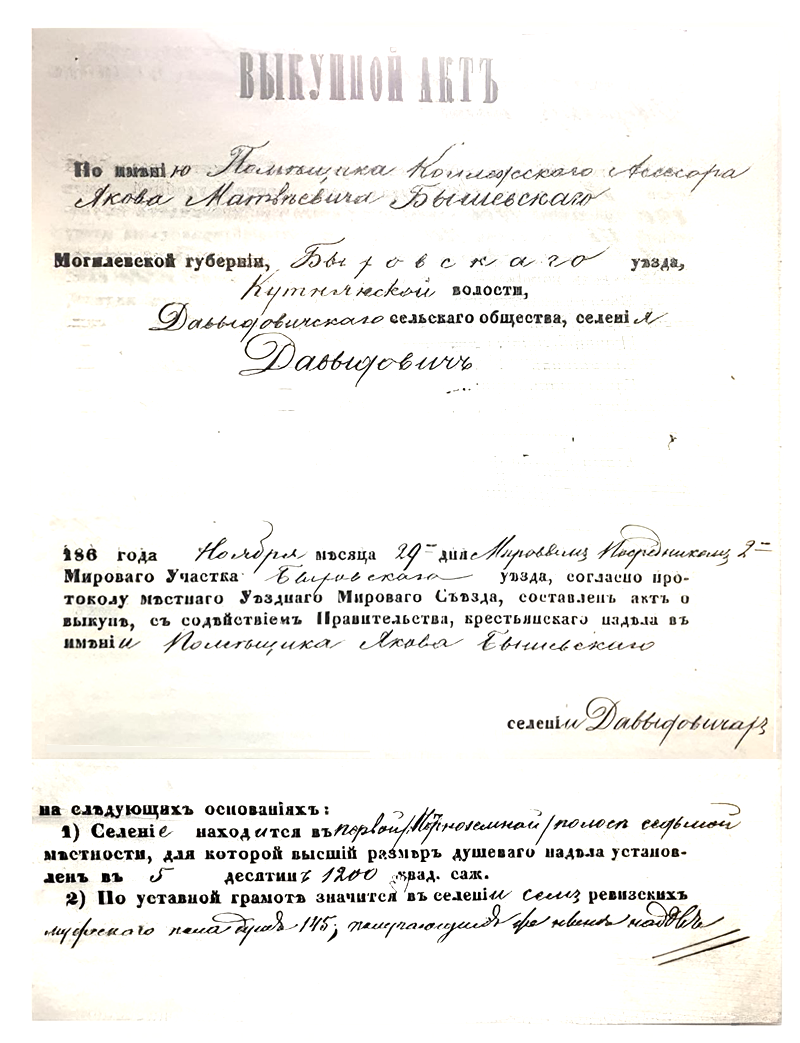 ВЫКУПНОЙ АКТЪ
По имѣнію Помѣщика Коллежскаго Асесора
Якова Матвѣевича Бышевскаго
Могилевской губерніи, Быховскаго уѣзда,
волости,
Даввыдовичскаго сельскаго общества, селенія
Даввыдовичъ
186 года Ноября мѣсяца 29 дня Мировымъ Посредникомъ 2
Мироваго Участка Быховскаго уѣзда, согласно про-
токолу мѣстнаго Уѣзднаго Мироваго Съѣзда, составленъ актъ о
выкупѣ, съ содѣйствіемъ Правительства, крестьянскаго надѣла въ
имѣніи Помѣщика Якова Бышевскаго
селеніи Даввыдовичахъ
на слѣдующихъ основаніяхъ:
1) Селеніе находится въ первой /Нечерноземной/ полосѣ седьмой
мѣстности, для которой высшій размѣръ душеваго надѣла установ-
ленъ въ 5 десятинъ 1200 квад. саж.
2) По уставной грамотѣ значится въ селеніи семъ ревизскихъ
мужескаго пола душъ 145, надѣлъ